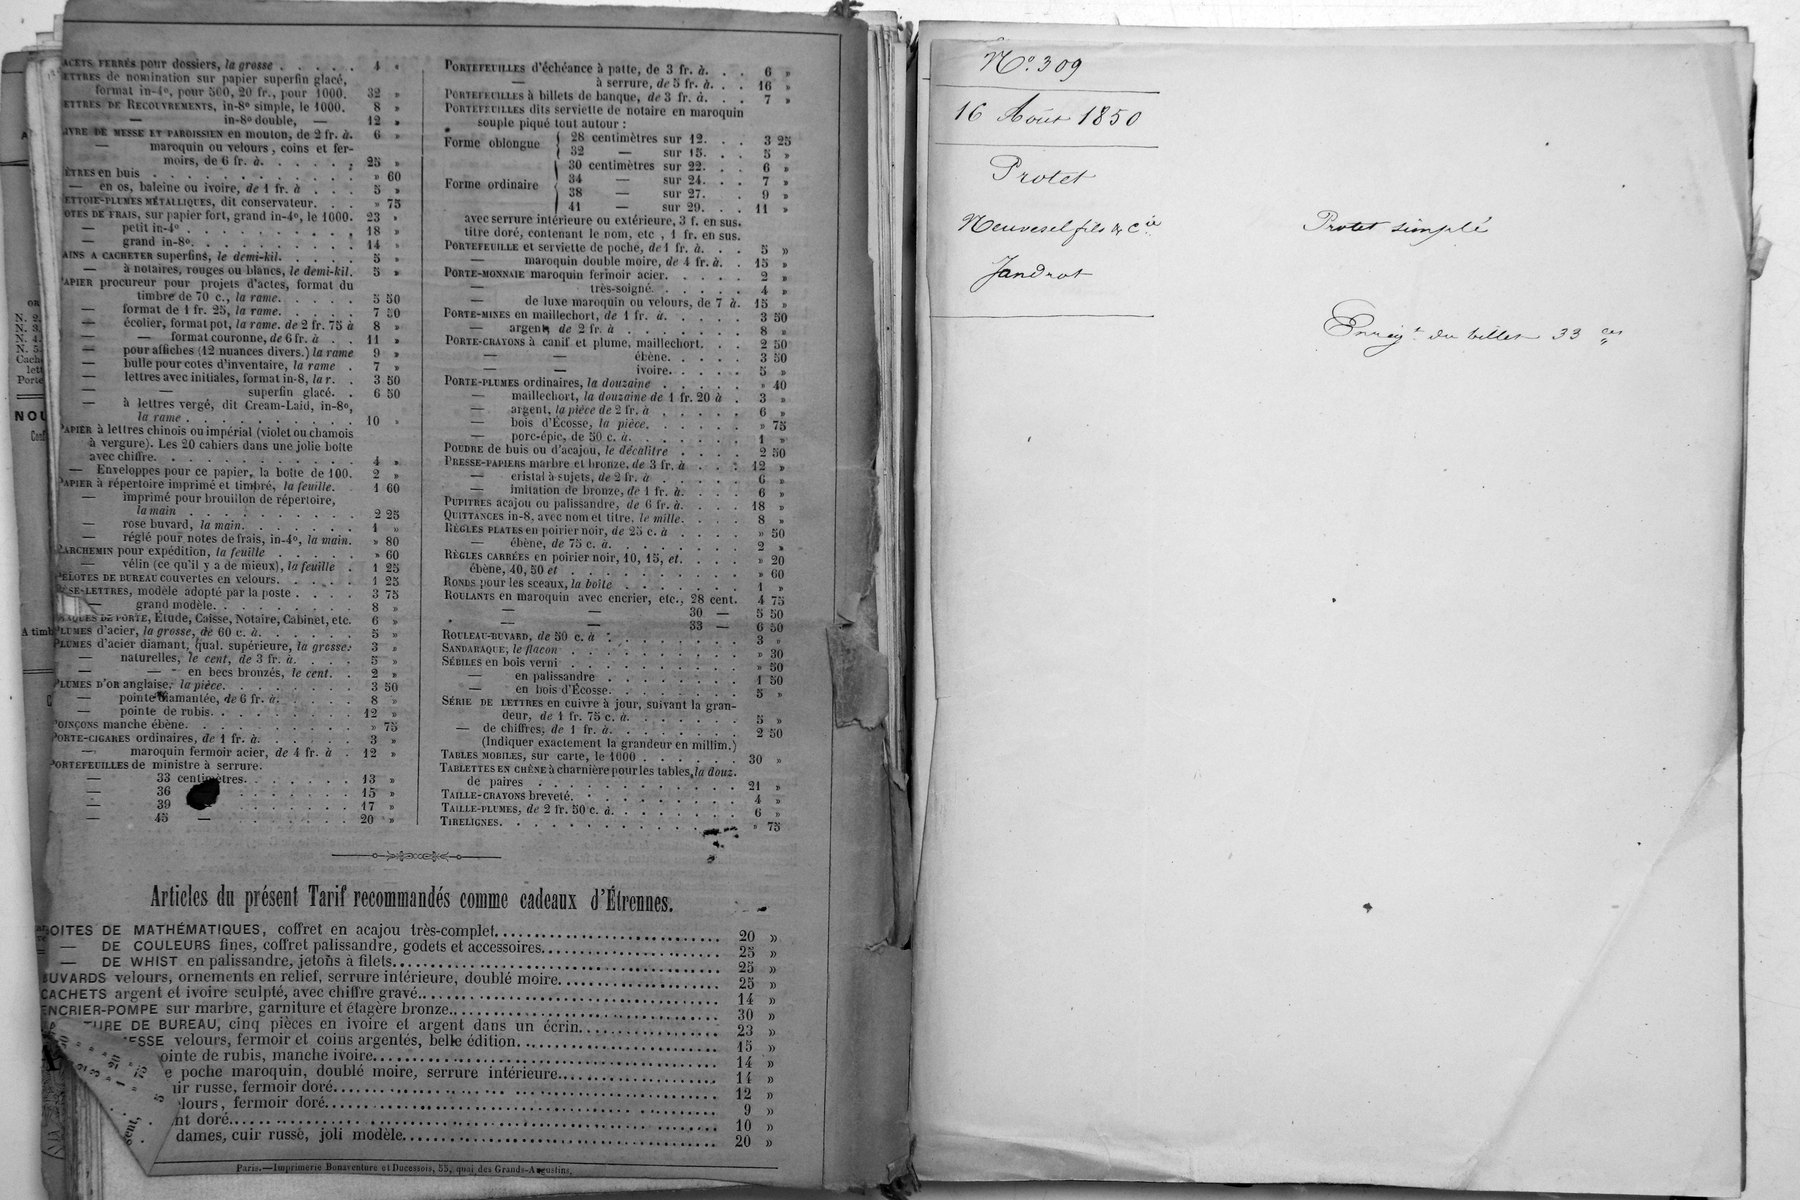 ACETS FERRÉS pour dossiers, la grosse . . . . . 4 »
ETTRES de nomination sur papier superfin glacé,
format in-4º, pour 500, 20 fr., pour 1000. 32 »
ETTRES DE RECOUVREMENTS, in-8º simple, le 1000. 8 »
— in-8º double, — 12 »
IVRE DE MESSE ET PAROISSIEN en mouton, de 2 fr. à. 6 »
— maroquin ou velours, coins et fer-
moirs, de 6 fr. à. . . . . . 25 »
ÈTRES en buis . . . . . . . . . . » 60
— en os, baleine ou ivoire, de 1 fr. à . . . 5 »
ETTOIE-PLUMES MÉTALLIQUES, dit conservateur. . . » 75
OTES DE FRAIS, sur papier fort, grand in-4º, le 1000. 23 »
— petit in-4º . . . . . . . . 18 »
— grand in-8º. . . . . . . . 14 »
AINS A CACHETER superfins, le demi-kil. . . . . 5 »
— à notaires, rouges ou blancs, le demi-kil. 5 »
PAPIER procureur pour projets d'actes, format du
timbre de 70 c., la rame. . . . . 5 50
— format de 1 fr. 25, la rame. . . . . 7 50
— écolier, format pot, la rame. de 2 fr. 75 à 8 »
— — format couronne, de 6 fr. à . . 11 »
— pour affiches (12 nuances divers.) la rame 9 »
— bulle pour cotes d'inventaire, la rame . 7 »
— lettres avec initiales, format in-8, la r. . 3 50
— — superfin glacé. . 6 50
— à lettres vergé, dit Cream-Laid, in-8º,
la rame . . . . . . . . . 10 »
PAPIER à lettres chinois ou impérial (violet ou chamois
à vergure). Les 20 cahiers dans une jolie boîte
avec chiffre. . . . . . . . . . 4 »
— Enveloppes pour ce papier, la boîte de 100. 2 »
PAPIER à répertoire imprimé et timbré, la feuille. 1 60
— imprimé pour brouillon de répertoire,
la main . . . . . . . . . 2 25
— rose buvard, la main. . . . . . . 1 »
— réglé pour notes de frais, in-4º, la main. » 80
PARCHEMIN pour expédition, la feuille . . . . . » 60
— vélin (ce qu'il y a de mieux), la feuille . 1 25
PELOTES DE BUREAU couvertes en velours. . . . . 1 25
PÈSE-LETTRES, modèle adopté par la poste . . . . 3 75
— grand modèle. . . . . . . . 8 »
PLAQUES DE PORTE, Étude, Caisse, Notaire, Cabinet, etc. 6 »
PLUMES d'acier, la grosse, de 60 c. à. . . . . . 5 »
PLUMES d'acier diamant, qual. supérieure, la grosse. 3 »
— naturelles, le cent, de 3 fr. à. . . . 5 »
— — en becs bronzés, le cent. . 2 »
PLUMES D'OR anglaise, la pièce. . . . . . . . 3 50
— pointe diamantée, de 6 fr. à. . . . . 8 »
— pointe de rubis. . . . . . . . . 12 »
POINÇONS manche ébène. . . . . . . . . . » 75
PORTE-CIGARES ordinaires, de 1 fr. à. . . . . . 3 »
— maroquin fermoir acier, de 4 fr. à . 12 »
PORTEFEUILLES de ministre à serrure.
— 33 centimètres. . . . . . . 13 »
— 36 . . . . . . . 15 »
— 39 . . . . . . . 17 »
— 45 — . . . . . . . 20 »
PORTEFEUILLES d'échéance à patte, de 3 fr. à. . . 6 »
— à serrure, de 5 fr. à. . . 16 »
PORTEFEUILLES à billets de banque, de 3 fr. à. . . 7 »
PORTEFEUILLES dits serviette de notaire en maroquin
souple piqué tout autour :
Forme oblongue { 28 centimètres sur 12. . . 3 25
32 — sur 15. . . 5 »
Forme ordinaire { 30 centimètres sur 22. . . 6 »
34 — sur 24. . . 7 »
38 — sur 27. . . 9 »
41 — sur 29. . . 11 »
avec serrure intérieure ou extérieure, 3 f. en sus.
titre doré, contenant le nom, etc , 1 fr. en sus.
PORTEFEUILLE et serviette de poche, de 1 fr. à. . . 5 »
— maroquin double moire, de 4 fr. à. . 15 »
PORTE-MONNAIE maroquin fermoir acier. . . . . . 2 »
— très-soigné. . . . . . 4 »
— de luxe maroquin ou velours, de 7 à. 15 »
PORTE-MINES en maillechort, de 1 fr. à. . . . . 3 50
— argent, de 2 fr. à . . . . . . . 8 »
PORTE-CRAYONS à canif et plume, maillechort. . . 2 50
— — ébène. . . . 3 50
— — ivoire. . . . 5 »
PORTE-PLUMES ordinaires, la douzaine . . . . . » 40
— maillechort, la douzaine de 1 fr. 20 à . 3 »
— argent, la pièce de 2 fr. à . . . . . 6 »
— bois d'Écosse, la pièce. . . . . . » 75
— porc-épic, de 50 c. à. . . . . . . 1 »
POUDRE de buis ou d'acajou, le décalitre . . . . 2 50
PRESSE-PAPIERS marbre et bronze, de 3 fr. à . . . 12 »
— cristal à sujets, de 2 fr. à . . . . . 6 »
— imitation de bronze, de 1 fr. à. . . . 6 »
PUPITRES acajou ou palissandre, de 6 fr. à. . . . 18 »
QUITTANCES in-8, avec nom et titre, le mille. . . . 8 »
RÈGLES PLATES en poirier noir, de 25 c. à . . . . » 50
— ébène, de 75 c. à. . . . . . . . 2 »
RÈGLES CARRÉES en poirier noir, 10, 15, et. . . . » 20
ébène, 40, 50 et . . . . . . . . . » 60
RONDS pour les sceaux, la boîte . . . . . . . 1 »
ROULANTS en maroquin avec encrier, etc., 28 cent. 4 75
— — 30 — 5 50
— — 33 — 6 50
ROULEAU-BUVARD, de 50 c. à . . . . . . . . 3 »
SANDARAQUE, le flacon . . . . . . . . . . » 30
SÉBILES en bois verni . . . . . . . . . . » 50
— en palissandre . . . . . . . . 1 50
— en bois d'Écosse. . . . . . . . 5 »
SÉRIE DE LETTRES en cuivre à jour, suivant la gran-
deur, de 1 fr. 75 c. à. . . . . . . 5 »
— de chiffres, de 1 fr. à. . . . . . . . 2 50
(Indiquer exactement la grandeur en millim.)
TABLES MOBILES, sur carte, le 1000 . . . . . . 30 »
TABLETTES EN CHÊNE à charnière pour les tables, la douz.
de paires . . . . . . . . . . . 21 »
TAILLE-CRAYONS breveté. . . . . . . . . . . 4 »
TAILLE-PLUMES, de 2 fr. 50 c. à. . . . . . . . 6 »
TIRELIGNES. . . . . . . . . . . . . . » 75
Articles du présent Tarif recommandés comme cadeaux d'Étrennes.
OITES DE MATHÉMATIQUES, coffret en acajou très-complet. . . . . 20 »
— DE COULEURS fines, coffret palissandre, godets et accessoires. . . . . 25 »
— DE WHIST en palissandre, jetons à filets. . . . . 25 »
BUVARDS velours, ornements en relief, serrure intérieure, doublé moire. . . . . 25 »
CACHETS argent et ivoire sculpté, avec chiffre gravé. . . . . 14 »
ENCRIER-POMPE sur marbre, garniture et étagère bronze. . . . . 30 »
TURE DE BUREAU, cinq pièces en ivoire et argent dans un écrin. . . . . 23 »
ESSE velours, fermoir et coins argentés, belle édition. . . . . 15 »
ointe de rubis, manche ivoire. . . . . 14 »
e poche maroquin, doublé moire, serrure intérieure. . . . . 14 »
uir russe, fermoir doré. . . . . 12 »
elours, fermoir doré. . . . . 9 »
nt doré. . . . . 10 »
dames, cuir russe, joli modèle. . . . . 20 »
Paris.—Imprimerie Bonaventure et Ducessois, 55, quai des Grands-Augustins.
Nº 309
16 Août 1850
Protet
Neuvesel fils & Cie
Jandrot
Protet simple
Enregt du billet 33 ces